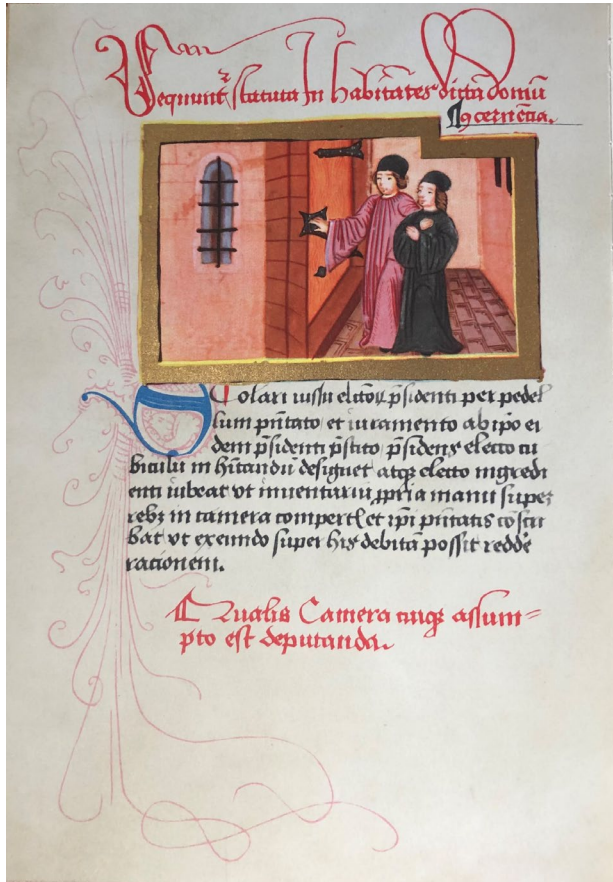 Sequunt᷑ statuta In habitātes dictā domū
ꝯcernētia.
Scolari iussu electorū p̄sidenti per pedel
lum pn̄tato et iuramento ab ip̄o ei
dem p̄sidenti p̄stito p̄sidens electo cu
biculū in hītandū designet atqꝫ electo ingredi
enti iubeat vt inuentariū ꝓpria manu super
rebꝫ in camera compertis et ip̄i pn̄tatis cōscri
bat vt exeundo super his debitā possit redde
racionem.
Qualis Camera cuiqꝫ assum-
pto est deputanda.